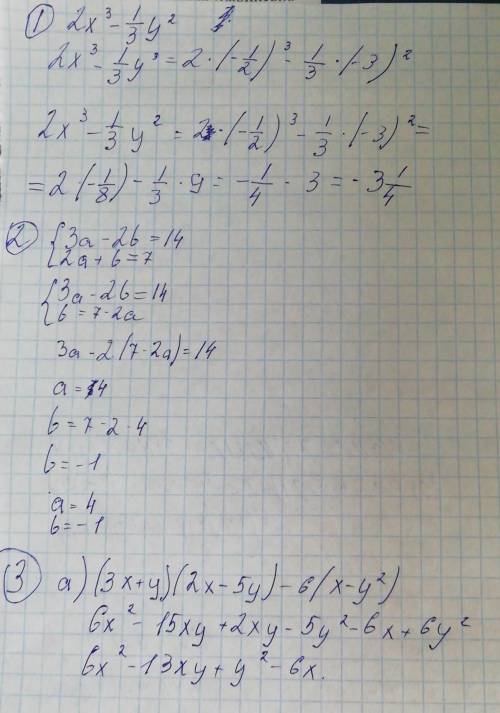 ① 2x³ - 1/3 y²
2x³ - 1/3 y³ = 2 · (-1/2)³ - 1/3 · (-3)²
2x³ - 1/3 y² = 2 · (-1/2)³ - 1/3 · (-3)² =
= 2 (-1/8) - 1/3 · 9 = -1/4 - 3 = -3 1/4
② { 3a - 2b = 14
2a + b = 7
{ 3a - 2b = 14
b = 7 - 2a
3a - 2(7 - 2a) = 14
a = 4
b = 7 - 2 · 4
b = -1
a = 4
b = -1
③ a) (3x+y)(2x-5y) - 6(x-y²)
6x² - 15xy + 2xy - 5y² - 6x + 6y²
6x² - 13xy + y² - 6x.